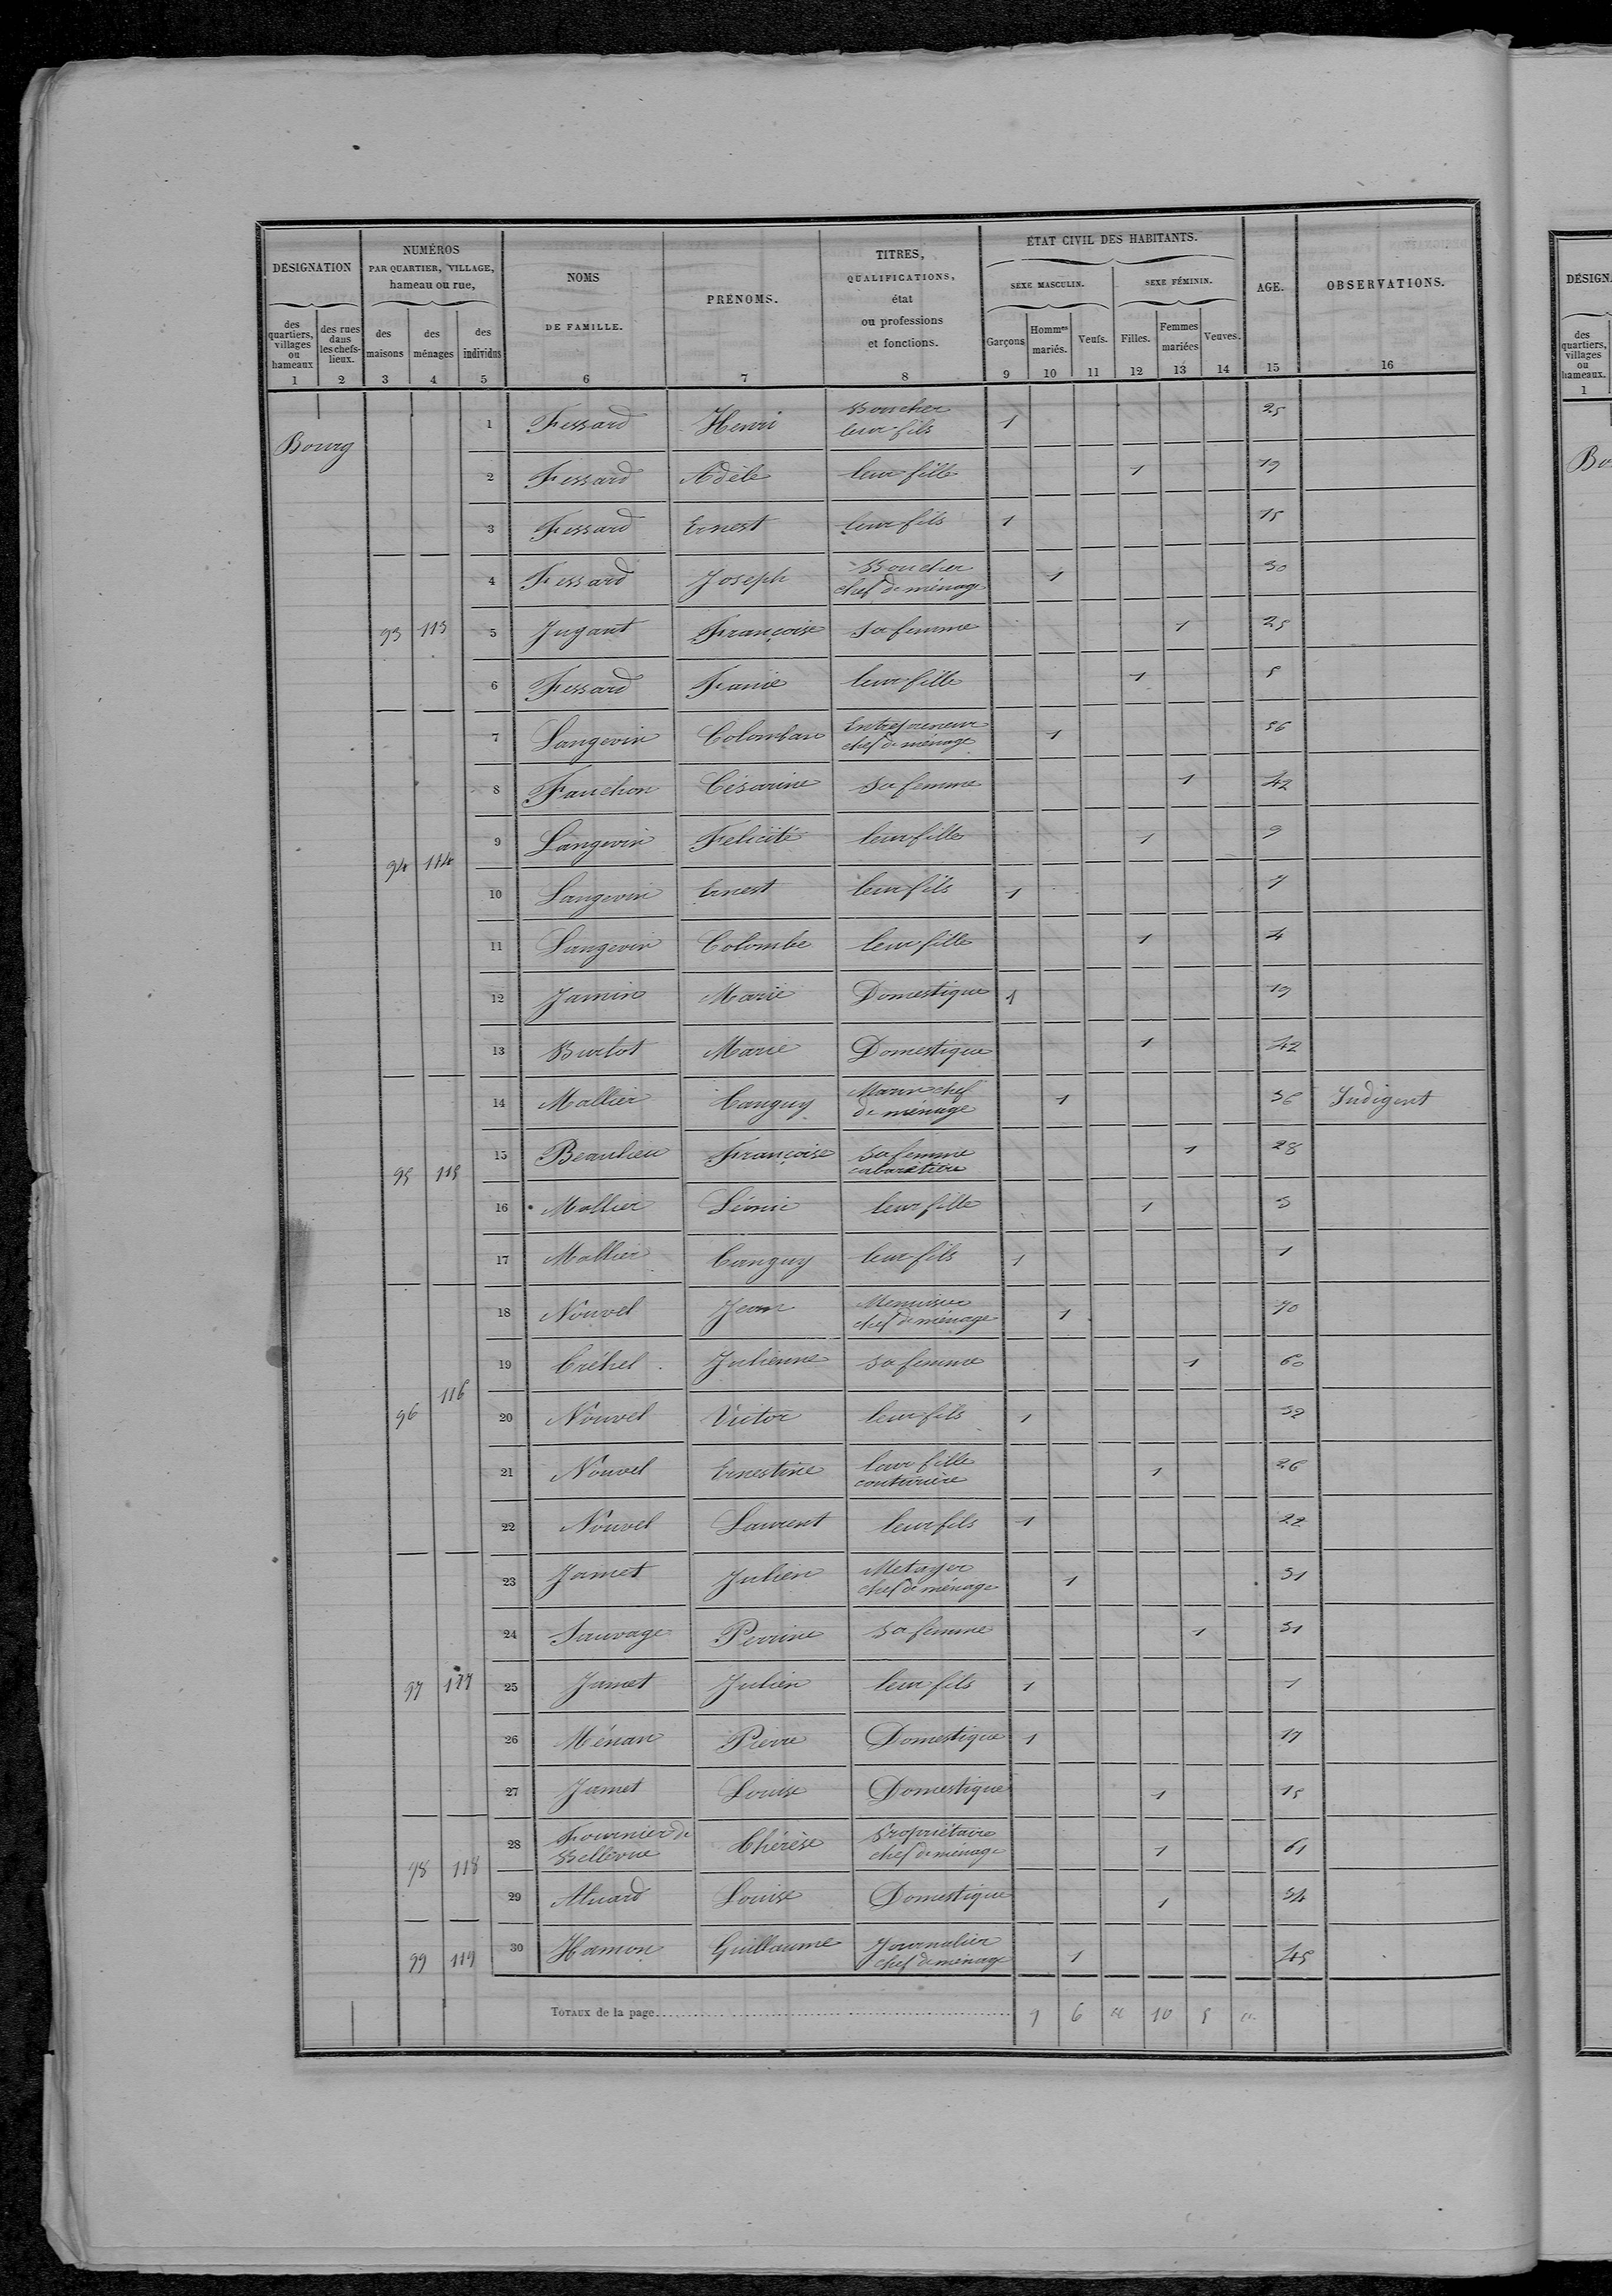 DÉSIGNATION
NUMÉROS
PAR QUARTIER, VILLAGE,
hameau ou rue,
NOMS
DE FAMILLE.
PRÉNOMS.
TITRES,
QUALIFICATIONS,
état
ou professions
et fonctions.
ÉTAT CIVIL DES HABITANTS.
SEXE MASCULIN. SEXE FÉMININ.
AGE.
OBSERVATIONS.
des quartiers, villages ou hameaux
des rues dans les chefs-lieux.
des maisons
des ménages
des individus
Garçons Hommes mariés. Veufs. Filles. Femmes mariées Veuves.
1 2 3 4 5 6 7 8 9 10 11 12 13 14 15 16
Bourg
1 Fessard Henri Boucher leur fils 1 25
2 Fessard Adèle leur fille 1 19
3 Fessard Ernest leur fils 1 15
4 Fessard Joseph Boucher chef de ménage 1 30
93 113 5 Jugant Françoise Sa femme 1 25
6 Fessard Fanie leur fille 1 5
7 Langevin Colomban Entrepreneur chef de ménage 1 56
8 Fauchon Césarine Sa femme 1 42
9 Langevin Felicité leur fille 1 9
94 114
10 Langevin Ernest leur fils 1 7
11 Langevin Colombe leur fille 1 4
12 Jamin Marie Domestique 1 19
13 Burlot Marie Domestique 1 42
14 Mallier Tanguy Marin chef de ménage 1 36 Indigent
95 115 15 Beaulieu Françoise Sa femme cabaretière 1 28
16 Mallier leur fille 1 3
17 Mallier Tanguy leur fils 1 1
18 Nouvel Jean Menuisier chef de ménage 1 70
19 Créhel Julienne Sa femme 1 60
96 116 20 Nouvel Victor leur fils 1 32
21 Nouvel Ernestine leur fille couturière 1 26
22 Nouvel Laurent leur fils 1 22
23 Jamet Julien Metayer chef de ménage 1 31
24 Sauvage Perrine Sa femme 1 31
97 117 25 Jamet Julien leur fils 1 1
26 Ménan Pierre Domestique 1 17
27 Jamet Louise Domestique 1 15
28 Fournier de Bellevue Thérèse Propriétaire chef de menage 1 61
98 118
29 Aluard Louise Domestique 1 54
99 119 30 Hamon Guillaume Journalier chef de ménage 1 45
TOTAUX de la page 9 6 " 10 5 "
DÉSIGN
des quartiers, villages ou hameaux.
1
Bo